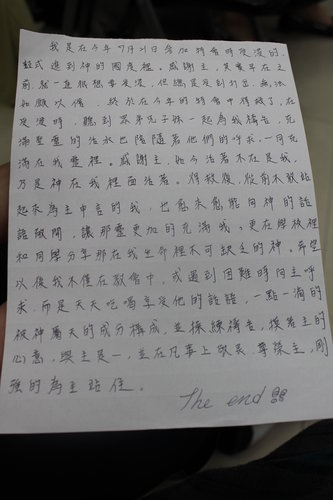 我是在今年7月21日參加特會時受浸的
益式進到神的國度裡。感謝主,其實早在之
前就一直很想要受浸,但總是受到打岔,無法
如願以償,終於在今年的特會中得救了,在
受浸時,聽到眾弟兄子妹一起為我禱告,充
滿聖靈的活水也隨著他們的呼求,一同充
滿在我靈裡。感謝主,如今活著不在是我,
乃是神在我裡面活著。得救後,從前不敢站
起來為主申言的我,也愈來愈能向神的話
語敞開,讓那靈更加的充滿我。更在學校裡
和同學分享那在我生命裡不可缺乏的神。希望
以後我不僅在教會中,或遇到困難時向主呼
求,而是天天吃喝享受他的話語,一點一滴的
被神屬天的成分構成,並操練禱告,摸著主的
心意,與主是一,並在凡事上敬畏、尊榮主,剛
強的為主站住。
The end